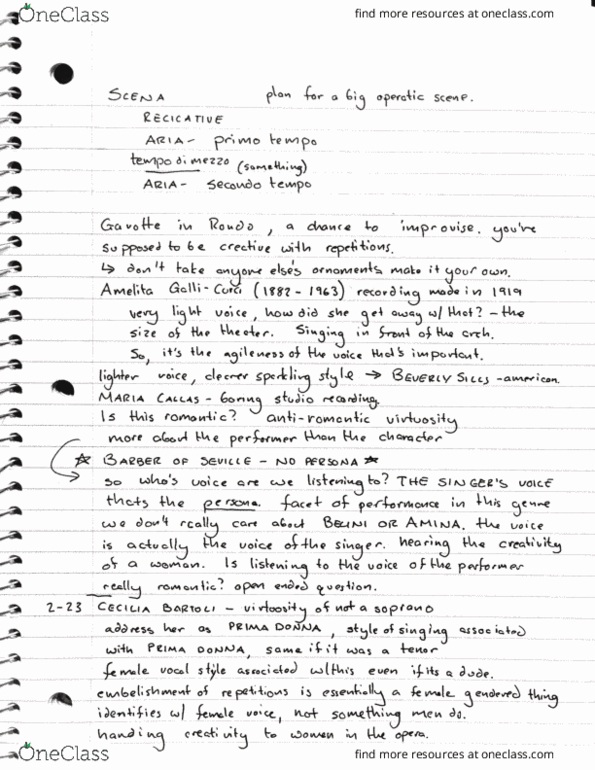 OneClass
find more resources at oneclass.com
SCENA plan for a big operatic scene.
RECICATIVE
ARIA - primo tempo
tempo di mezzo (something)
ARIA - secondo tempo
Gavotte in Rondo, a chance to improvise. you're
supposed to be creative with repetitions.
↳ don't take anyone else's ornaments make it your own.
Amelita Galli-Curci (1882 - 1963) recording made in 1919
very light voice, how did she get away w/ that? - the
size of the theater. Singing in front of the arch.
So, it's the agileness of the voice that's important.
lighter voice, clearer sparkling style → BEVERLY SILLS - american.
MARIA CALLAS - boring studio recording.
Is this romantic? anti-romantic virtuosity
more about the performer than the character
☆ BARBER OF SEVILLE - NO PERSONA ☆
so who's voice are we listening to? THE SINGER'S VOICE
thats the persona. facet of performance in this genre
we don't really care about BELINI OR AMINA. the voice
is actually the voice of the singer. hearing the creativity
of a woman. Is listening to the voice of the performer
really romantic? open ended question.
2-23 CECILIA BARTOLI - virtuosity of not a soprano
address her as PRIMA DONNA, style of singing associated
with PRIMA DONNA, same if it was a tenor
female vocal style associated w/ this even if its a dude.
embelishment of repetitions is essentially a female gendered thing
identifies w/ female voice, not something men do.
handing creativity to women in the opera.
OneClass
find more resources at oneclass.com